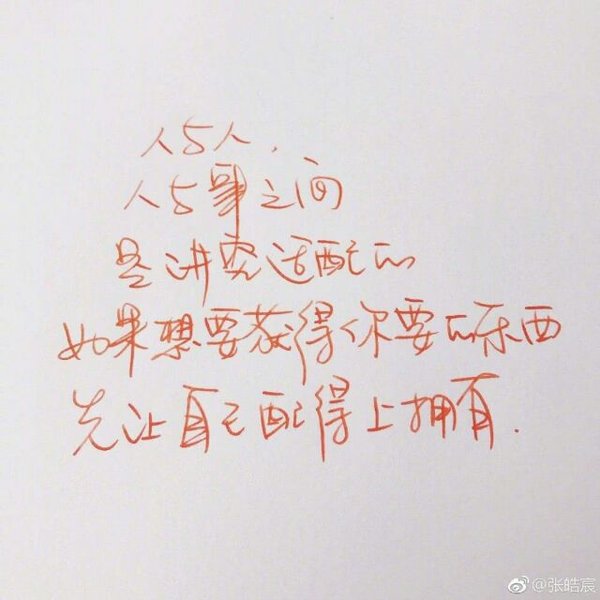 人与人,
人与事之间
是讲究适配的
如果想要获得你要的东西
先让自己配得上拥有.
@张皓宸